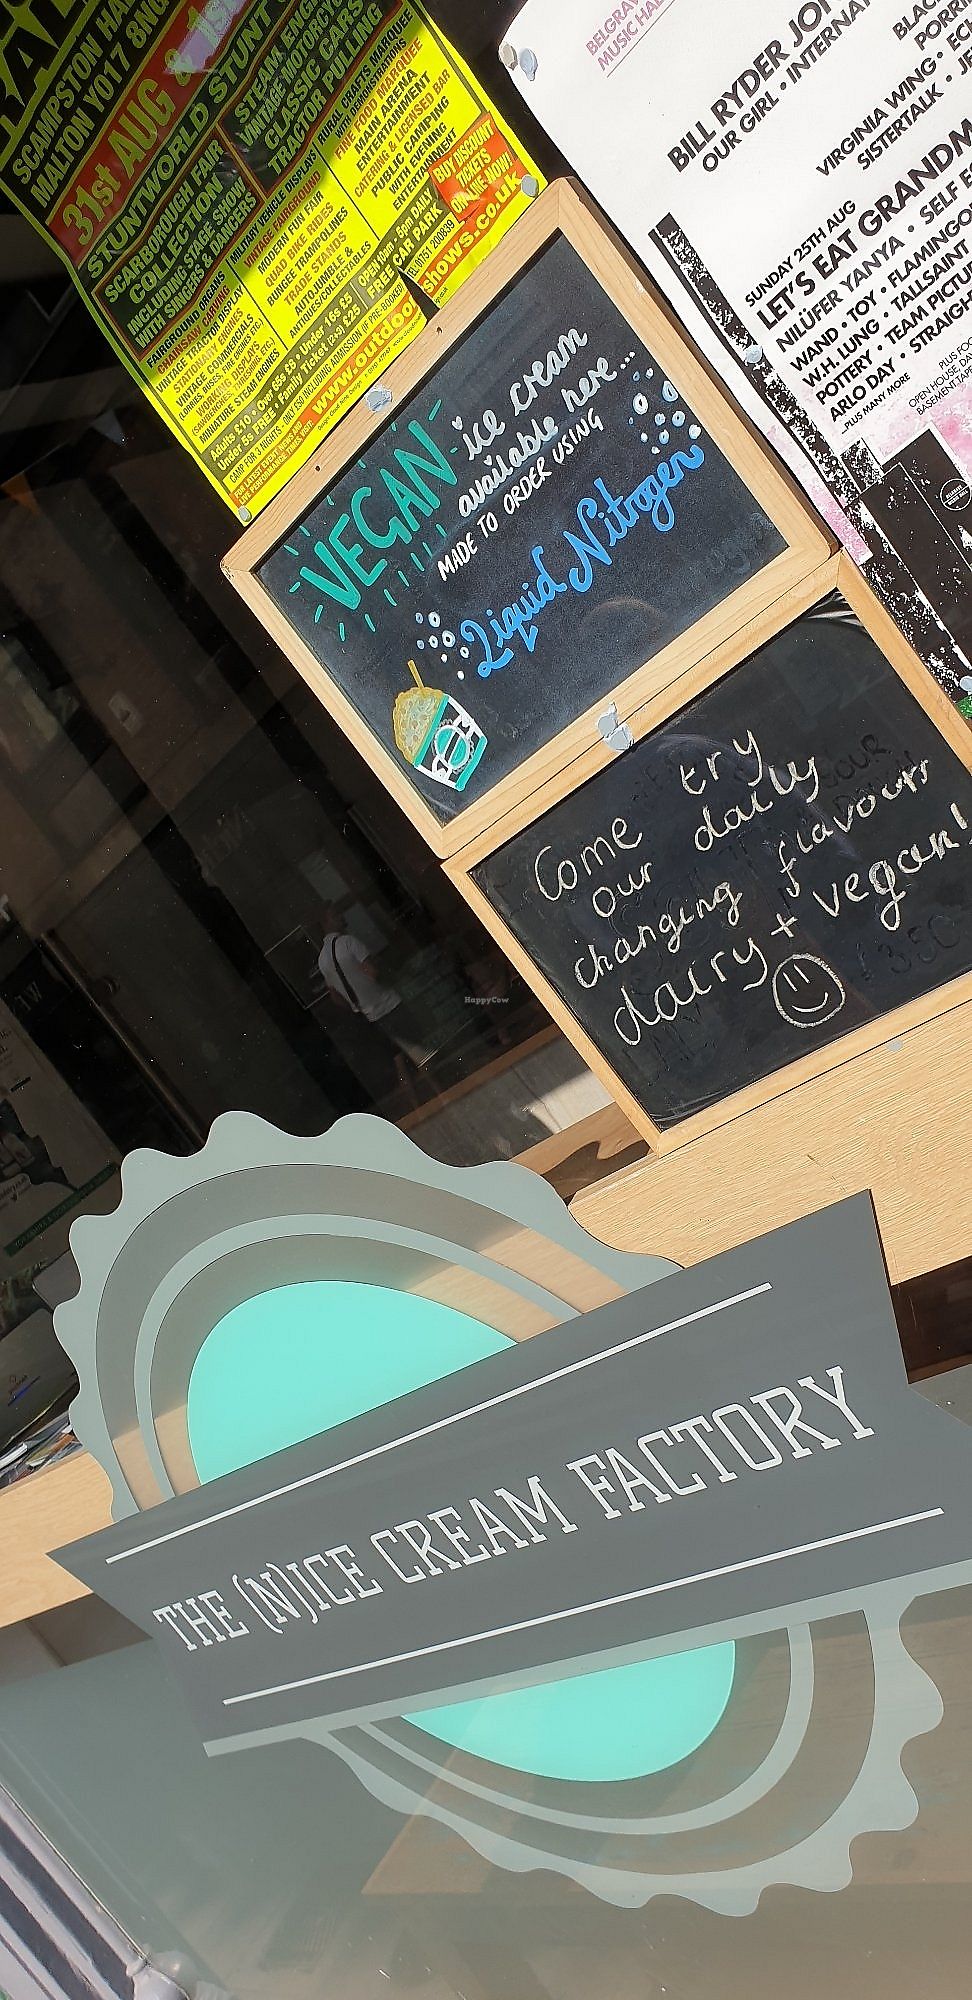 SCAMPSTON HA
MALTON YO17 8NG
31st AUG & 1s
STUNTWORLD STUNT
SCARBOROUGH FAIR
COLLECTION
INCLUDING STAGE SHOW
WITH SINGERS & DA
STEAM, ENG
VINTAGE MOTORCYC
CLASSIC CARS
TRACTOR PULLING
FAIRGROUND ORGANS
CHAINSAW CARVING
VINTAGE TRACTOR DISPLAY
STATIONARY ENGINES
VINTAGE COMMERCIALS
MINIATURE STEAM ENGINES
MILITARY VEHICLE DISPLAYS
VINTAGE FAIRGROUND
MODERN FUN FAIR
QUAD BIKE RIDES
BUNGEE TRAMPOLINES
TRADE STANDS
AUTOJUMBLE &
ANTIQUES/COLLECTABLES
RURAL CRAFTS MARQUEE
WITH DEMONSTRATIONS
FINE FOOD MARQUEE
MAIN ARENA
ENTERTAINMENT
CATERING & LICENSED BAR
PUBLIC CAMPING
WITH EVENING
ENTERTAINMENT
BUY DISCOUNT
TICKETS
ON-LINE NOW!!
Adults £10 • Over 65s £9 • Under 16s £5
Under 5s FREE • Family Ticket (2+3) £25
OPEN 10am - 5pm DAILY
FREE CAR PARK
FOR LATEST EVENT NEWS AND
LIVE PERFORMANCE TIMES VISIT
www.outdoo
shows.co.uk
BELGRAV
MUSIC HAL
BILL RYDER JO
OUR GIRL • INTERNA
BLAC
PORRI
VIRGINIA WING • EC
SISTERTALK • JE
SUNDAY 25TH AUG
LET'S EAT GRANDM
NILÜFER YANYA • SELF ES
WAND • TOY • FLAMINGO
W.H. LUNG • TALLSAINT
POTTERY • TEAM PICTU
ARLO DAY • STRAIGH
...PLUS MANY MORE
PLUS FOO
OPEN HOUSE, DA
BASEMENT TAPE
VEGAN ice cream
available here...
MADE TO ORDER USING
Liquid Nitrogen
Come try
our daily
changing flavours
dairy + vegan!
HappyCow
THE (N)ICE CREAM FACTORY